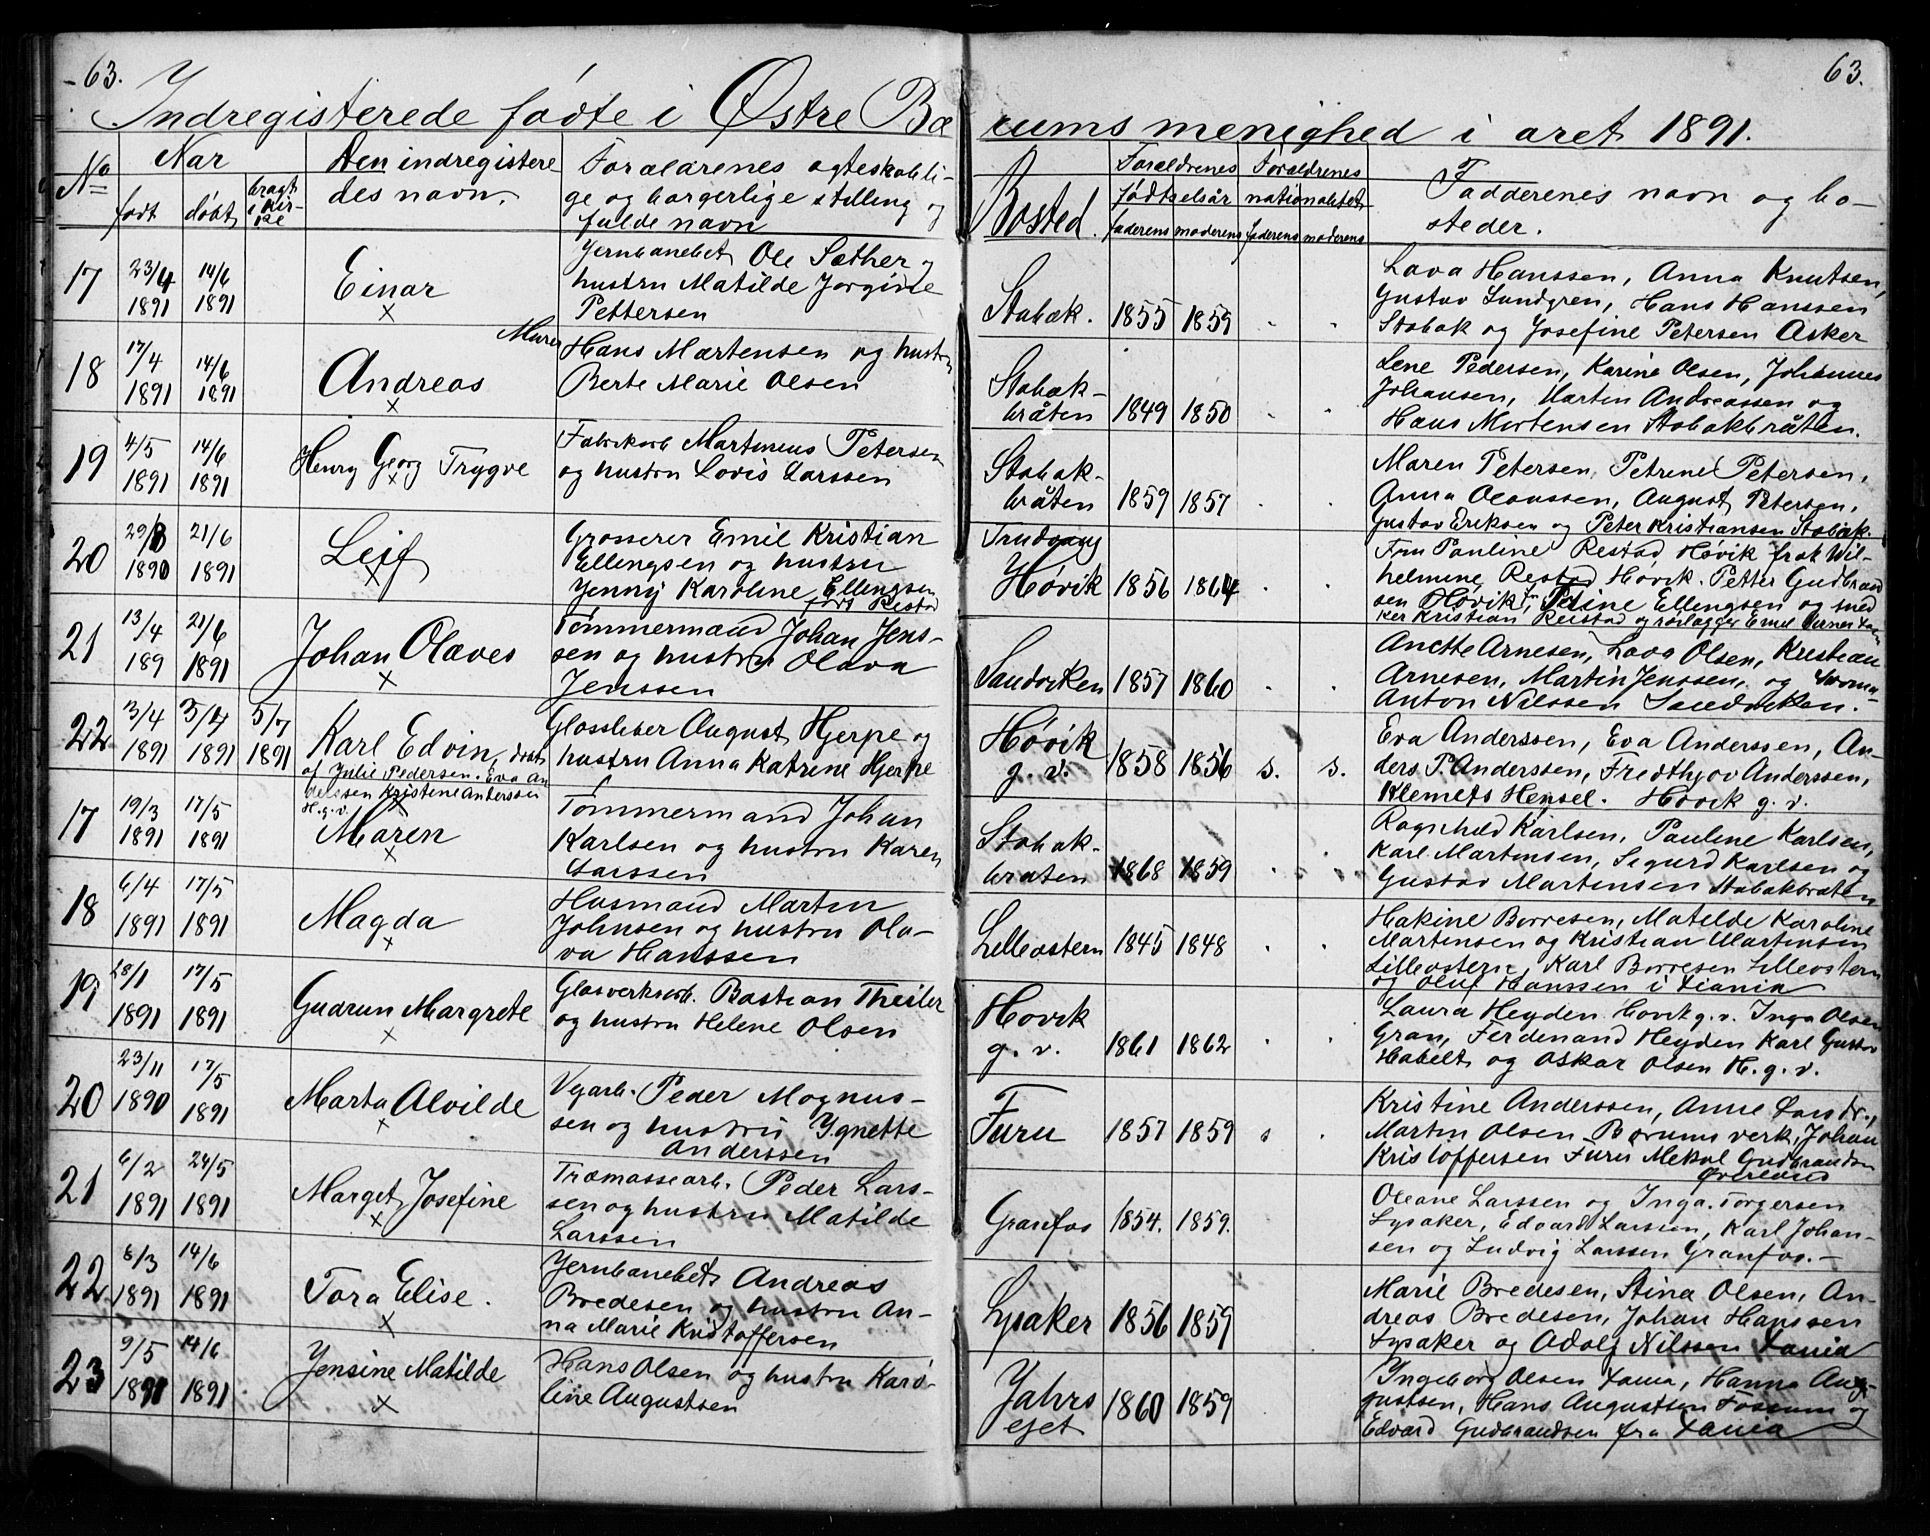 63.
63.
Indregisterede fødte i Østre Bæ
rums menighed i aret 1891.
No
Nar
født
døbt
bragt i Kirke
Den indregistere
des navn.
Forældrenes ægteskabeli-
ge og borgerlige stilling og
fulde navn
Bosted.
Forældrenes
fødtselsår
faderens moderens
Forældrenes
nationalitet
faderens moderens
Fadderenes navn og bo-
steder.
17
23/4 1891
14/6 1891
Einar
×
Jernbanebet Ole Sæther og
hustru Matilde Jorgine
Pettersen
Stabæk.
1855
1859
Lava Hanssen, Anna Knutsen,
Gustav Lundgren, Hans Hanssen
Stabæk og Josefine Petersen Asker
18
17/4 1891
14/6 1891
Andreas
×
Murer
Hans Martensen og hustru
Berte Marie Olsen
Stabæk-
bråten
1849
1850
Lene Pedersen, Karine Olsen, Johannes
Johansen, Martin Andreassen og
Hans Mortensen Stabækbråten.
19
4/5 1891
14/6 1891
Henry Georg Trygve
×
Fabrikarb Martinius Petersen
og hustru Lovis Larssen
Stabæk-
bråten
1859
1857
Maren Petersen, Petrine Petersen,
Anna Olaussen, August Petersen,
Gustav Eriksen og Peter Kristiansen Stabæk.
20
29/8 1890
21/6 1891
Leif
×
Grosserer Emil Kristian
Ellengsen og hustru
Jenny Karoline Ellengsen
født Restad
Trudvang
Høvik
1856
1864
Fru Pauline Restad Høvik frøk Wil-
helmine Restad Høvik. Petter Gudbrand
sen Høvik, Ellengsen og sned
ker Kristian Reistad og rørlægger Emil
21
13/4 189
21/6 1891
Johan Olaves
×
Tømmermand Johan Jens-
sen og hustru Olava
Jenssen
Sandviken
1857
1860
Anette Arnesen, Lava Olsen, Kristian
Arnesen, Martin Jenssen, og
Anton Nilssen Sandviken.
22
3/4 1891
3/4 1891
5/7 1891
Karl Edvin, døbt
af Julie Pedersen. Eva An
derssen Kristine Anderssen
H.g.v. ×
Glassliber August Hjerpe og
hustru Anna Katrine Hjerpe
Høvik
g. v.
1858
1856
s.
s.
Eva Anderssen, Eva Anderssen, An-
ders P. Anderssen, Fredthjov Anderssen,
Klemets Hensel. Høvik g. v.
17
19/3 1891
17/5 1891
Maren
×
Tømmermand Johan
Karlsen og hustru Karen
Larssen
Stabæk-
braten
1868
1859
Ragnhild Karlsen, Pauline Karlsen,
Karl Martinsen, Sigurd Karlsen og
Gustav Martensen Stabækbråten
18
6/4 1891
17/5 1891
Magda
×
Husmand Martin
Johnsen og hustru Ola-
va Hanssen
Lilleøstern
1845
1848
Hakine Børresen, Matilde Karoline
Martensen og Kristian Martensen
Lilleøstern, Karl Børresen Lilleøstern
og Oluf Hanssen i Xiania
19
28/1 1891
17/5 1891
Gudrun Margrete
×
Glasverksarb. Bastian Theiler
og hustru Helene Olsen
Høvik
g. v.
1861
1862
Laura Heyden Høvik g. v. Inga Olsen
Gran, Ferdenand Heyden Karl Gustav
Habelt og Oskar Olsen H. g. v.
20
23/11 1890
17/5 1891
Marta Alvilde
×
Vejarb. Peder Magnus-
sen og hustru Ygnette
Anderssen
Furu
1857
1859
s
Kristine Anderssen, Anne
Martin Olsen Bærums verk, Johan
Kristoffersen Furu Mekal Gudbrandsen
21
6/2 1891
24/5 1891
Marget Josefine
×
Træmassearb. Peder Lars-
sen og hustru Matilde
Larssen
Granfos
1854.
1859.
Oleane Larssen og Inga Torgersen
Lysaker, Edvard Larssen, Karl Johan-
sen og Ludvig Larssen Granfos.—
22
8/3 1891
14/6 1891
Tora Elise.
×
Jernbanebet Andreas
Bredesen og hustru An-
na Marie Kristoffersen
Lysaker
1856
1859
Marie Bredesen, Stina Olsen, An-
dreas Bredesen, Johan Hanssen
Lysaker og Adolf Nilssen Xania
23
9/5 1891
14/6 1891
Jensine Matilde
×
Hans Olsen og hustru Karo-
line Augustsen
Jahrs
ejet
1860
1859
Ingeborg Olsen Xania, Hanna Aug-
gustsen, Hans Augustsen Fossum og
Edvard Gudbrandsen fra Xania